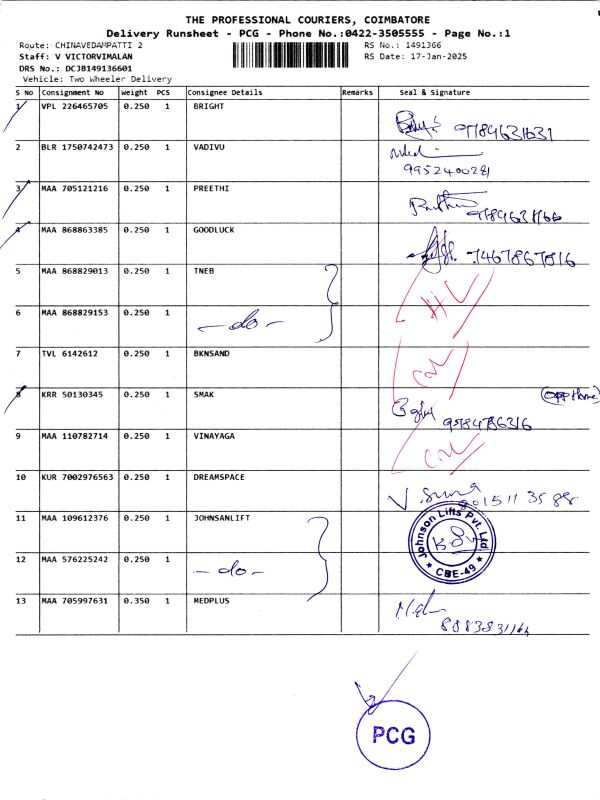 THE PROFESSIONAL COURIERS, COIMBATORE
Delivery Runsheet - PCG - Phone No.:0422-3505555 - Page No.:1
Route: CHINAVEDAMPATTI 2
RS No.: 1491366
Staff: V VICTORVIMALAN
RS Date: 17-Jan-2025
DRS No.: DCJB149136601
Vehicle: Two Wheeler Delivery
S No Consignment No Weight PCS Consignee Details Remarks Seal & Signature
1 VPL 226465705 0.250 1 BRIGHT
2 BLR 1750742473 0.250 1 VADIVU
9952400281
3 MAA 705121216 0.250 1 PREETHI
4 MAA 868863385 0.250 1 GOODLUCK
5 MAA 868829013 0.250 1 TNEB
6 MAA 868829153 0.250 1 -do-
7 TVL 6142612 0.250 1 BKNSAND
8 KRR 50130345 0.250 1 SMAK (Opp Home)
9 MAA 110782714 0.250 1 VINAYAGA
10 KUR 7002976563 0.250 1 DREAMSPACE
11 MAA 109612376 0.250 1 JOHNSANLIFT
Johnson Lifts Pvt. Ltd
* CBE-49 *
12 MAA 576225242 0.250 1 -do-
13 MAA 705997631 0.350 1 MEDPLUS
PCG